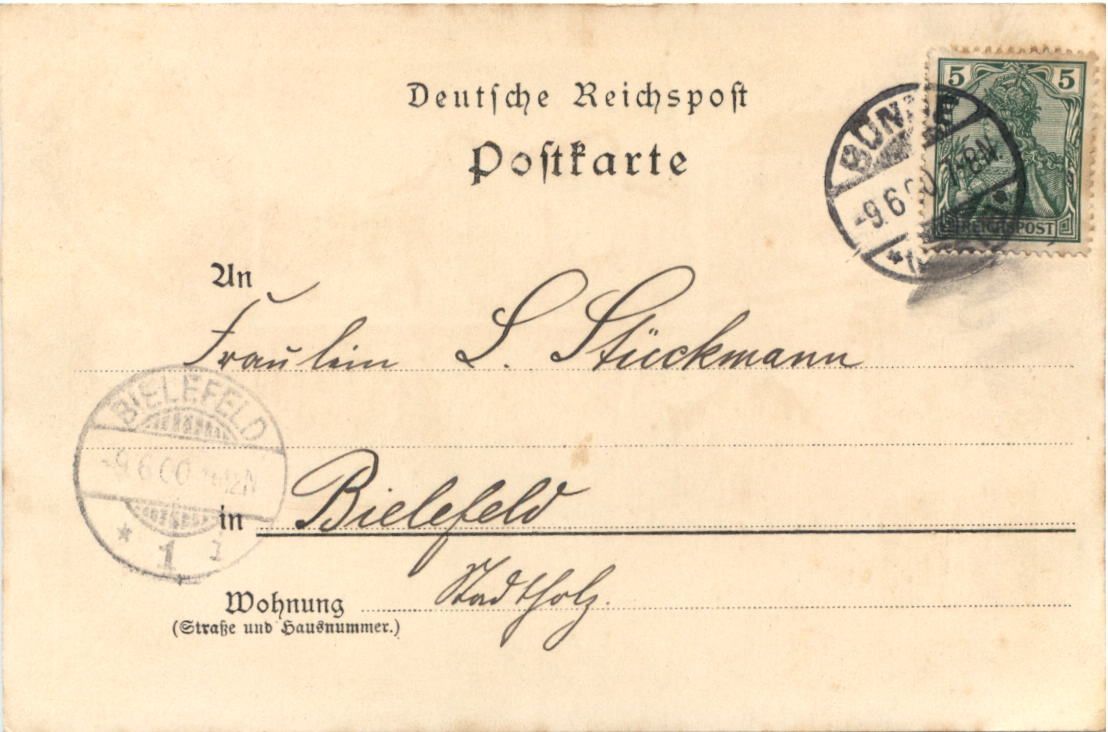 Deutsche Reichspost
Postkarte
5 5
BÜNDE
-9.6.00 7-8N.
REICHSPOST
An
Fräulein L. Stückmann
BIELEFELD
-9.6.00 12N
* 1 1
in Bielefeld
Stadtholz.
Wohnung
(Straße und Hausnummer.)